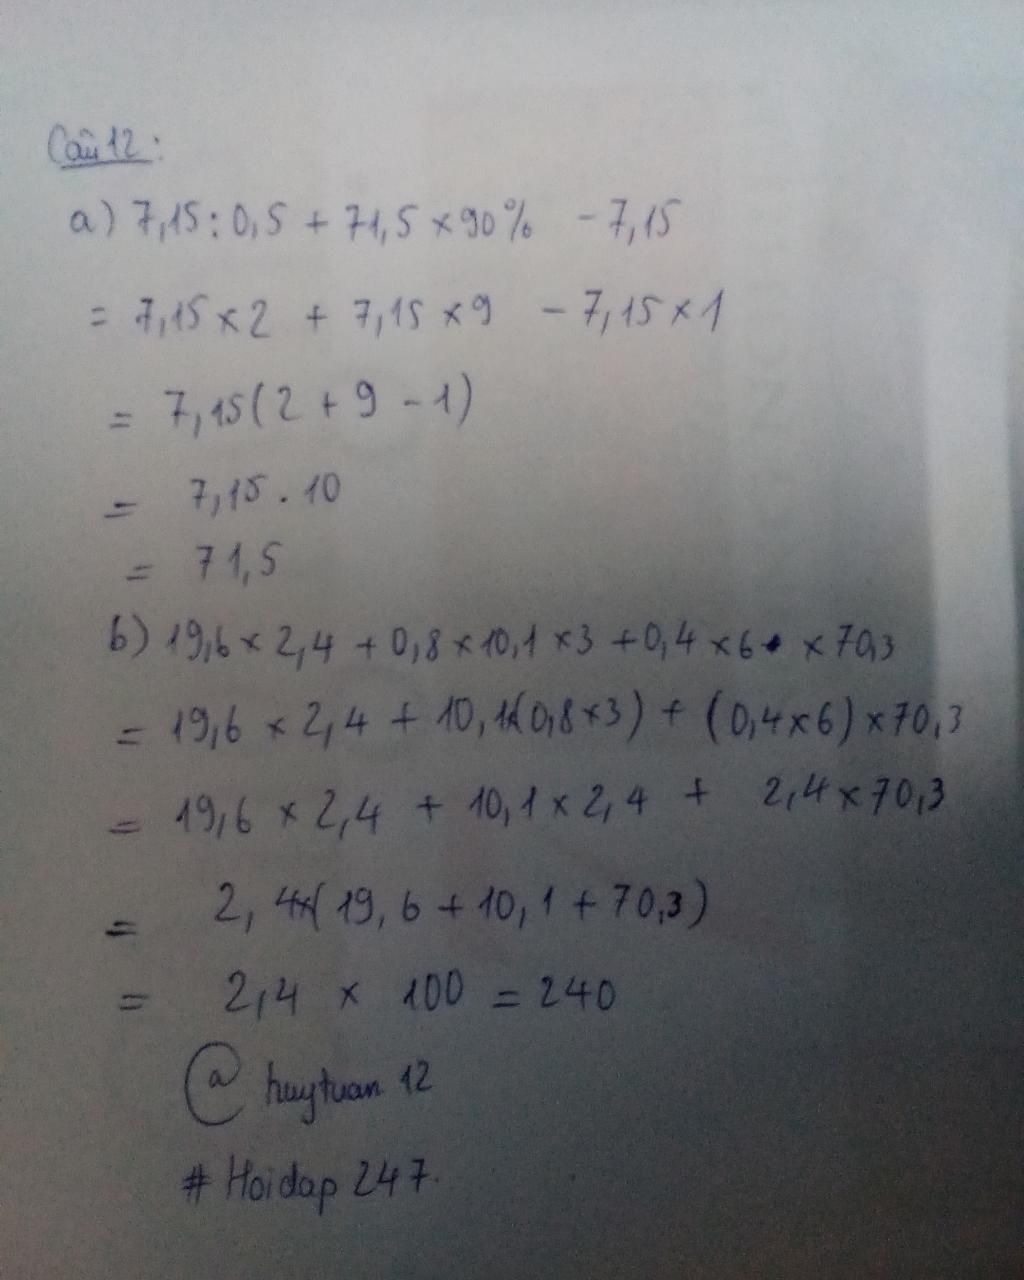 Câu 12:
a) 7,15 : 0,5 + 71,5 × 90% - 7,15
= 7,15 × 2 + 7,15 × 9 - 7,15 × 1
= 7,15 (2 + 9 - 1)
= 7,15 . 10
= 71,5
b) 19,6 × 2,4 + 0,8 × 10,1 × 3 + 0,4 × 6 × 70,3
= 19,6 × 2,4 + 10,1×(0,8 × 3) + (0,4 × 6) × 70,3
= 19,6 × 2,4 + 10,1 × 2,4 + 2,4 × 70,3
= 2,4×(19,6 + 10,1 + 70,3)
= 2,4 × 100 = 240
@ huytuan 12
# Hoidap 247.